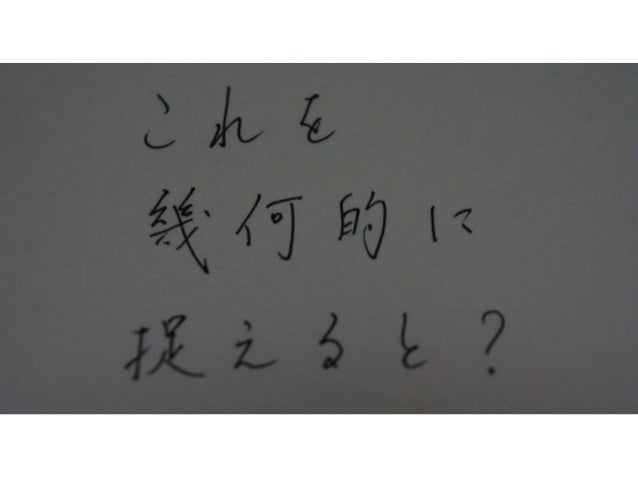 これを
幾何的に
捉えると?